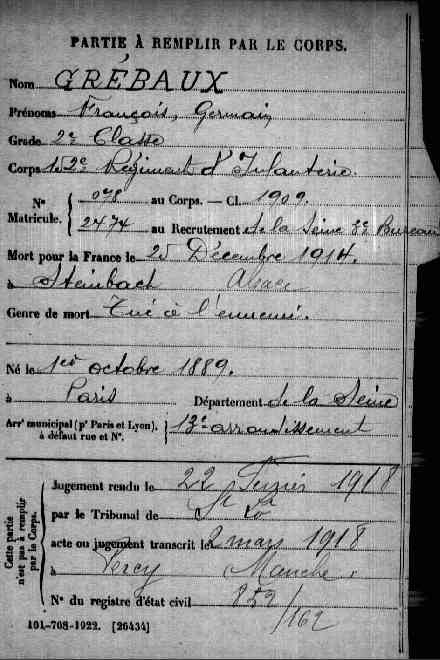 PARTIE À REMPLIR PAR LE CORPS.
Nom GRÉBAUX
Prénoms François, Germain
Grade 2e Classe
Corps 152e Régiment d'Infanterie.
N° Matricule. { 078 au Corps. — Cl. 1909.
2474 au Recrutement de la Seine 3e Bureau
Mort pour la France le 25 Décembre 1914.
à Steinbach Alsace
Genre de mort Tué à l'ennemi.
Né le 1er octobre 1889.
à Paris Département de la Seine
Arrt municipal (pr Paris et Lyon), à défaut rue et N°. } 13e arrondissement
Cette partie n'est pas à remplir par le Corps.
Jugement rendu le 22 Février 1918
par le Tribunal de St Lô
acte ou jugement transcrit le 2 mars 1918
à Percy Manche.
N° du registre d'état civil 852/162
101-708-1922. [26434]